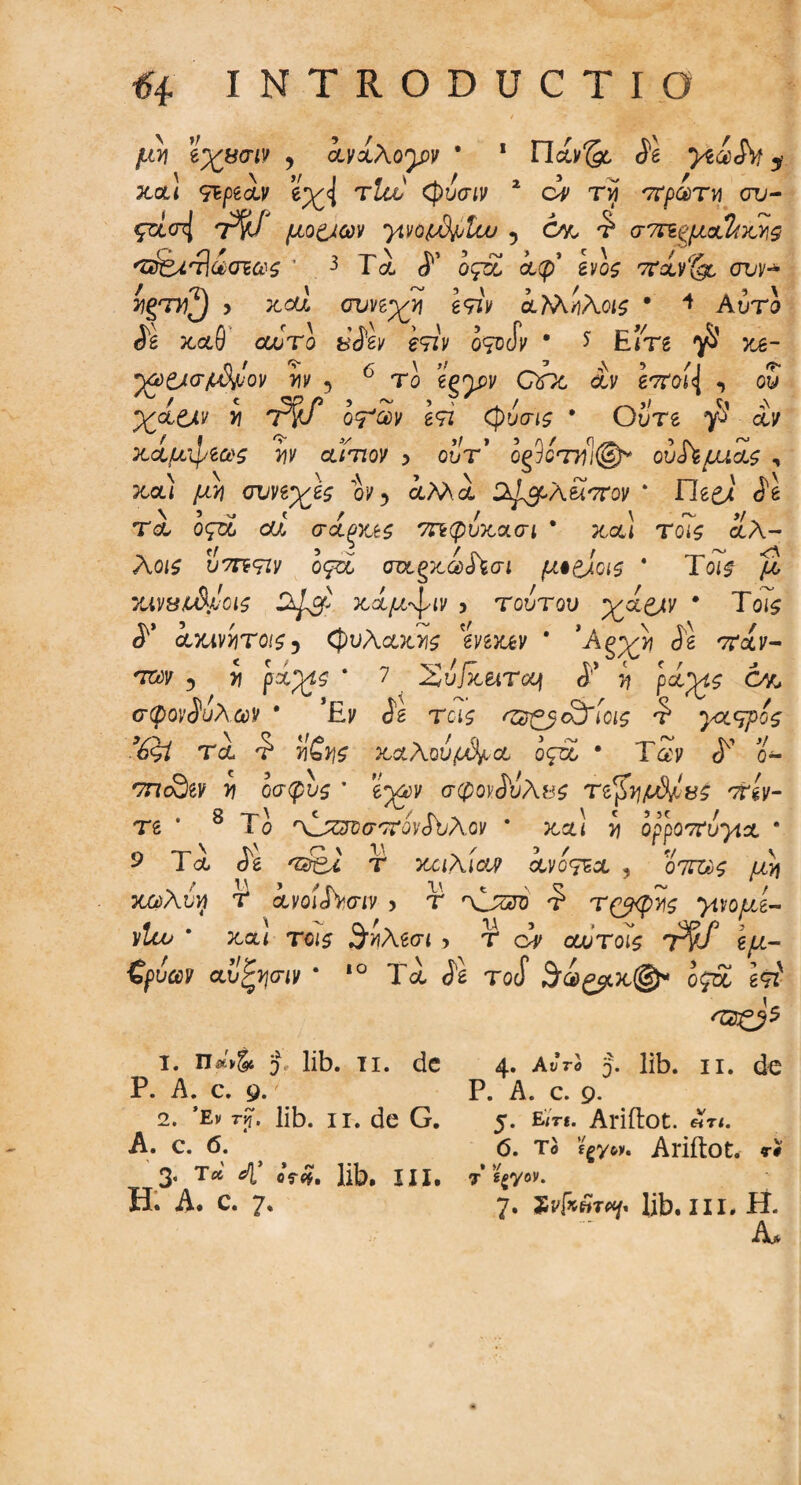 64 INTRODUCTIO
μὴ ἔχουσιν, ἀνάλογον· ¹ Πάντα δὲ γεώδη,
καὶ στερεὰν ἔχει τὴν φύσιν ² ἐν τῇ πρώτῃ συ-
στάσει τῶν μορίων γινομένην, ἐκ τῆς σπερματικῆς
περιττώσεως· ³ Τὰ δ' ὀστᾶ ἀφ' ἑνὸς πάντα συν-
ήρτηται, καὶ συνεχῆ ἐστιν ἀλλήλοις· ⁴ Αὐτὸ
δὲ καθ' αὑτὸ οὐδέν ἐστιν ὀστοῦν· ⁵ Εἴτε γὰρ κε-
χωρισμένον ἦν, ⁶ τὸ ἔργον οὐκ ἂν ἐποίει, οὗ
χάριν ἡ τῶν ὀστῶν ἐστι φύσις· Οὔτε γὰρ ἂν
κάμψεως ἦν αἴτιον, οὔτ' ὀρθότητος οὐδεμιᾶς,
καὶ μὴ συνεχὲς ὂν, ἀλλὰ διαλεῖπον· Περὶ δὲ
τὰ ὀστᾶ αἱ σάρκες πεφύκασι· καὶ τοῖς ἄλ-
λοις ὕπεστιν ὀστᾶ σαρκώδεσι μορίοις· Τοῖς μὲν
κινουμένοις διὰ κάμψιν, τούτου χάριν· Τοῖς
δ' ἀκινήτοις, φυλακῆς ἕνεκεν· Ἀρχὴ δὲ πάν-
των, ἡ ῥάχις· ⁷ Σύγκειται δ' ἡ ῥάχις ἐκ
σφονδύλων· Ἐν δὲ τοῖς προσθίοις τῆς γαστρὸς
ἐπὶ τὰ τῆς ἥβης καλούμενα ὀστᾶ· Τῶν δ' ὄ-
πισθεν ἡ ὀσφύς· ἔχων σφονδύλους τετρημένους πέν-
τε· ⁸ Τὸ ὑποσπόνδυλον· καὶ ἡ ὀρροπύγια·
⁹ Τὰ δὲ περὶ τὴν κοιλίαν ἀνόστεα, ὅπως μὴ
κωλύῃ τὴν ἀνοίδησιν, τὴν ὑπὸ τῆς τροφῆς γινομέ-
νην· καὶ τοῖς θήλεσι, τὴν ἐν αὐτοῖς τῶν ἐμ-
βρύων αὔξησιν· ¹⁰ Τὰ δὲ τοῦ θώρακος ὀστᾶ ἐστὶ
πρὸς
1. Πάντα δ. lib. II. de
P. A. c. 9.
2. Ἐν τῇ. lib. II. de G.
A. c. 6.
3. Τὰ δ' ὀστᾶ. lib. III.
H. A. c. 7.
4. Αὐτὸ δ. lib. II. de
P. A. c. 9.
5. Εἴτε. Aristot. εἴ τι.
6. Τὸ ἔργον. Aristot. τό
τ' ἔργον.
7. Σύγκειται. lib. III. H.
A.